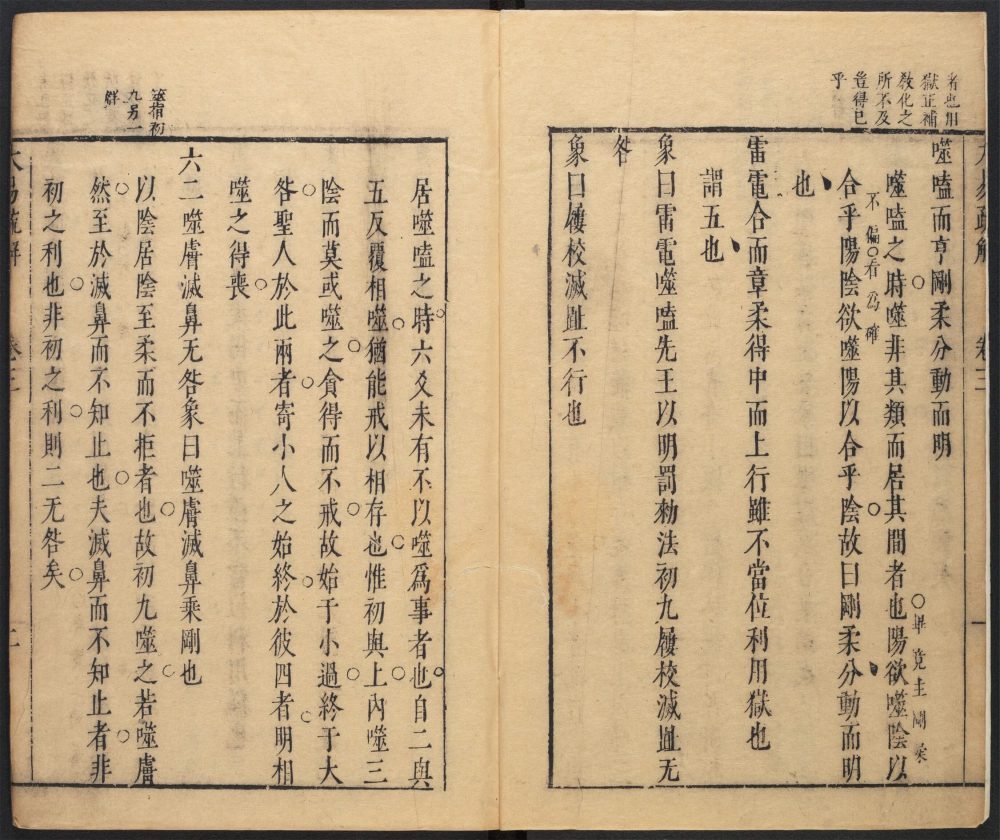 者也用
獄正補
教化之
所不及
豈得已
乎
噬嗑而亨剛柔分動而明
噬嗑之時噬非其類而居其間者也陽欲噬陰以
畢竟主剛柔
不偏看爲確
合乎陽陰欲噬陽以合乎陰故曰剛柔分動而明
也
雷電合而章柔得中而上行雖不當位利用獄也
謂五也
象曰雷電噬嗑先王以明罰勑法初九屨校滅趾无
咎
象曰屨校滅趾不行也
居噬嗑之時六爻未有不以噬爲事者也自二與
五反覆相噬猶能戒以相存也惟初與上内噬三
陰而莫或噬之貪得而不戒故始于小過終于大
咎聖人於此兩者寄小人之始終於彼四者明相
噬之得喪
噬指初
九另一
解
六二噬膚滅鼻无咎象曰噬膚滅鼻乘剛也
以陰居陰至柔而不拒者也故初九噬之若噬膚
然至於滅鼻而不知止也夫滅鼻而不知止者非
初之利也非初之利則二无咎矣